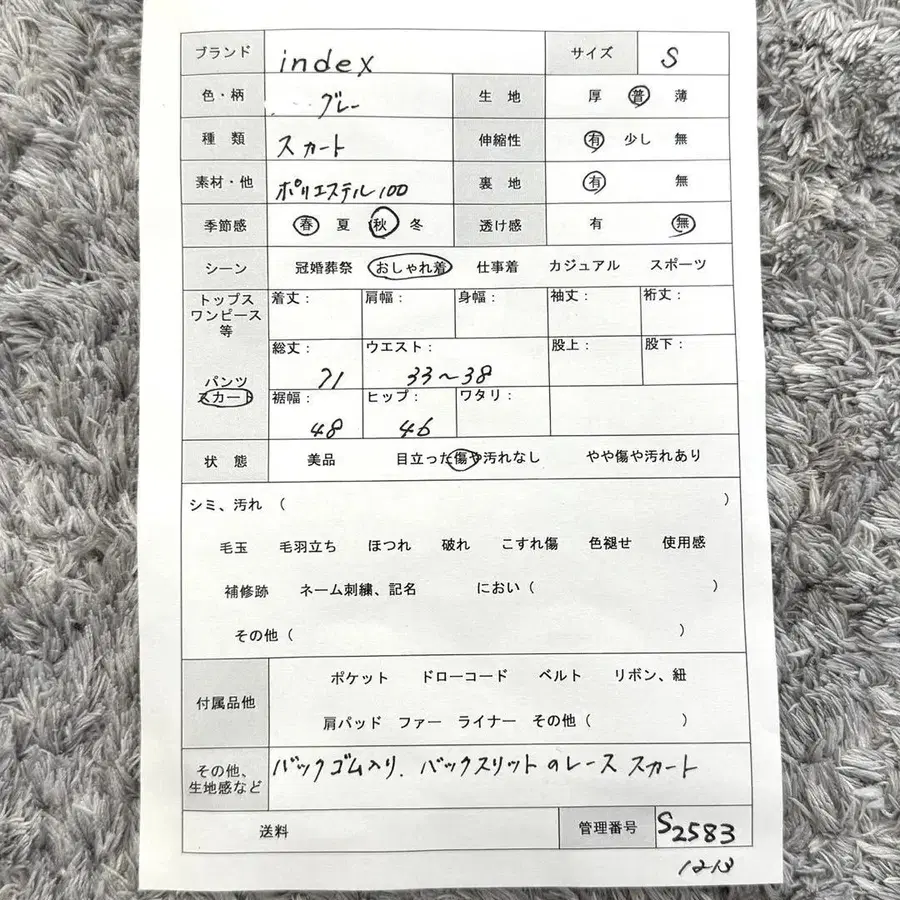 ブランド index サイズ S
色・柄 グレー 生地 厚 普 薄
種類 スカート 伸縮性 有 少し 無
素材・他 ポリエステル100 裏地 有 無
季節感 春 夏 秋 冬 透け感 有 無
シーン 冠婚葬祭 おしゃれ着 仕事着 カジュアル スポーツ
トップス
ワンピース
等
着丈： 肩幅： 身幅： 袖丈： 裄丈：
総丈： ウエスト： 股上： 股下：
71 33〜38
パンツ
スカート
裾幅： ヒップ： ワタリ：
48 46
状態 美品 目立った傷や汚れなし やや傷や汚れあり
シミ、汚れ （ ）
毛玉 毛羽立ち ほつれ 破れ こすれ傷 色褪せ 使用感
補修跡 ネーム刺繍、記名 におい（ ）
その他（ ）
付属品他
ポケット ドローコード ベルト リボン、紐
肩パッド ファー ライナー その他（ ）
その他、
生地感など
バックゴム入り. バックスリットのレース スカート
送料 管理番号 S2583
12-13